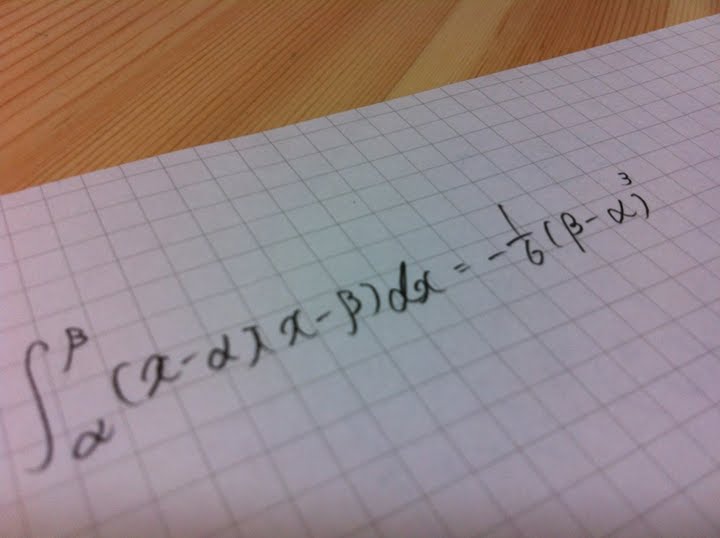 ∫_α^β (x-α)(x-β)dx = -1/6(β-α)^3